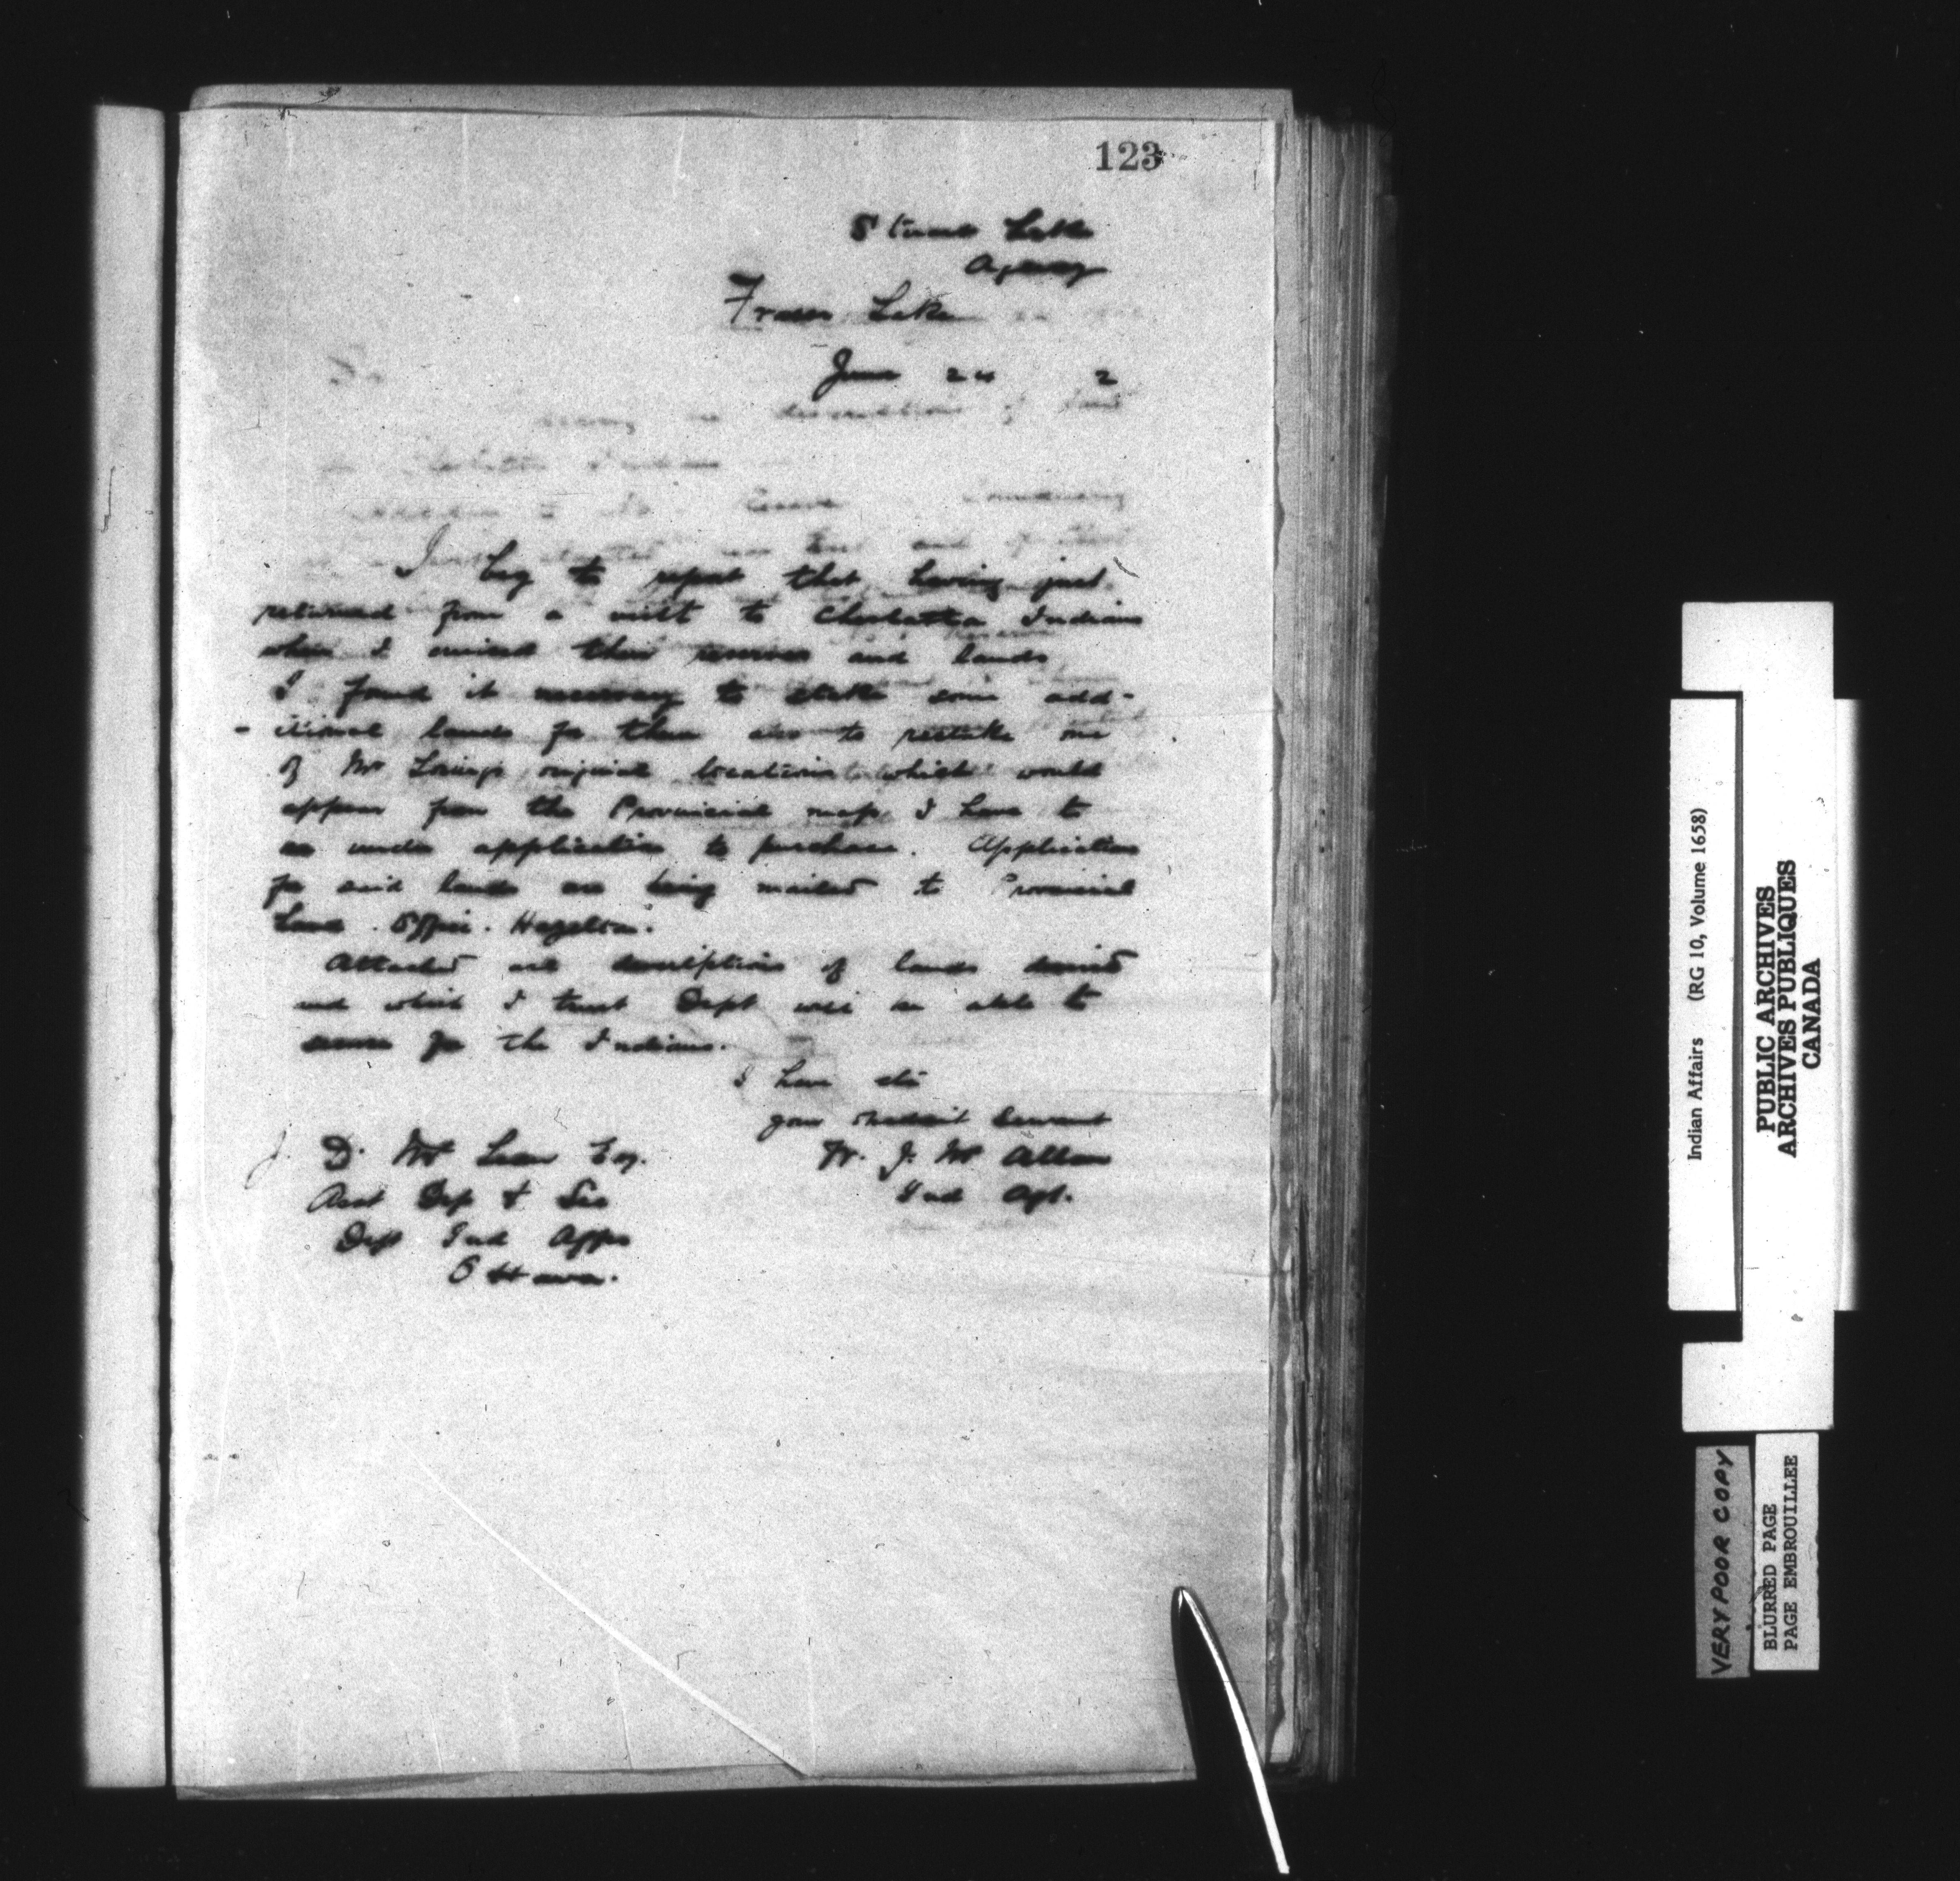 123
Stuart Lake
Agency
Fraser Lake
June 24 2
I beg to report that having just
returned from a visit to Cheslatta Indians
when I visited their reserves and lands
I found it necessary to stake some add-
-itional lands for them also to restake one
of Mr Loring's original locations which would
appear from the Provincial map I have to
be under application to purchase. Application
for said lands are being mailed to Provincial
Land Office. Hazelton.
Attached are descriptions of lands desired
and which I trust Dept will be able to
secure for the Indians.
I have etc
your obedient Servant
W. J. Mc Allan
Ind Agt.
J. D. Mc Lean Esq.
Asst Dep & Sec
Dept Ind Affrs
Ottawa.
Indian Affairs (RG 10, Volume 1658)
PUBLIC ARCHIVES
ARCHIVES PUBLIQUES
CANADA
VERY POOR COPY
BLURRED PAGE
PAGE EMBROUILLEE